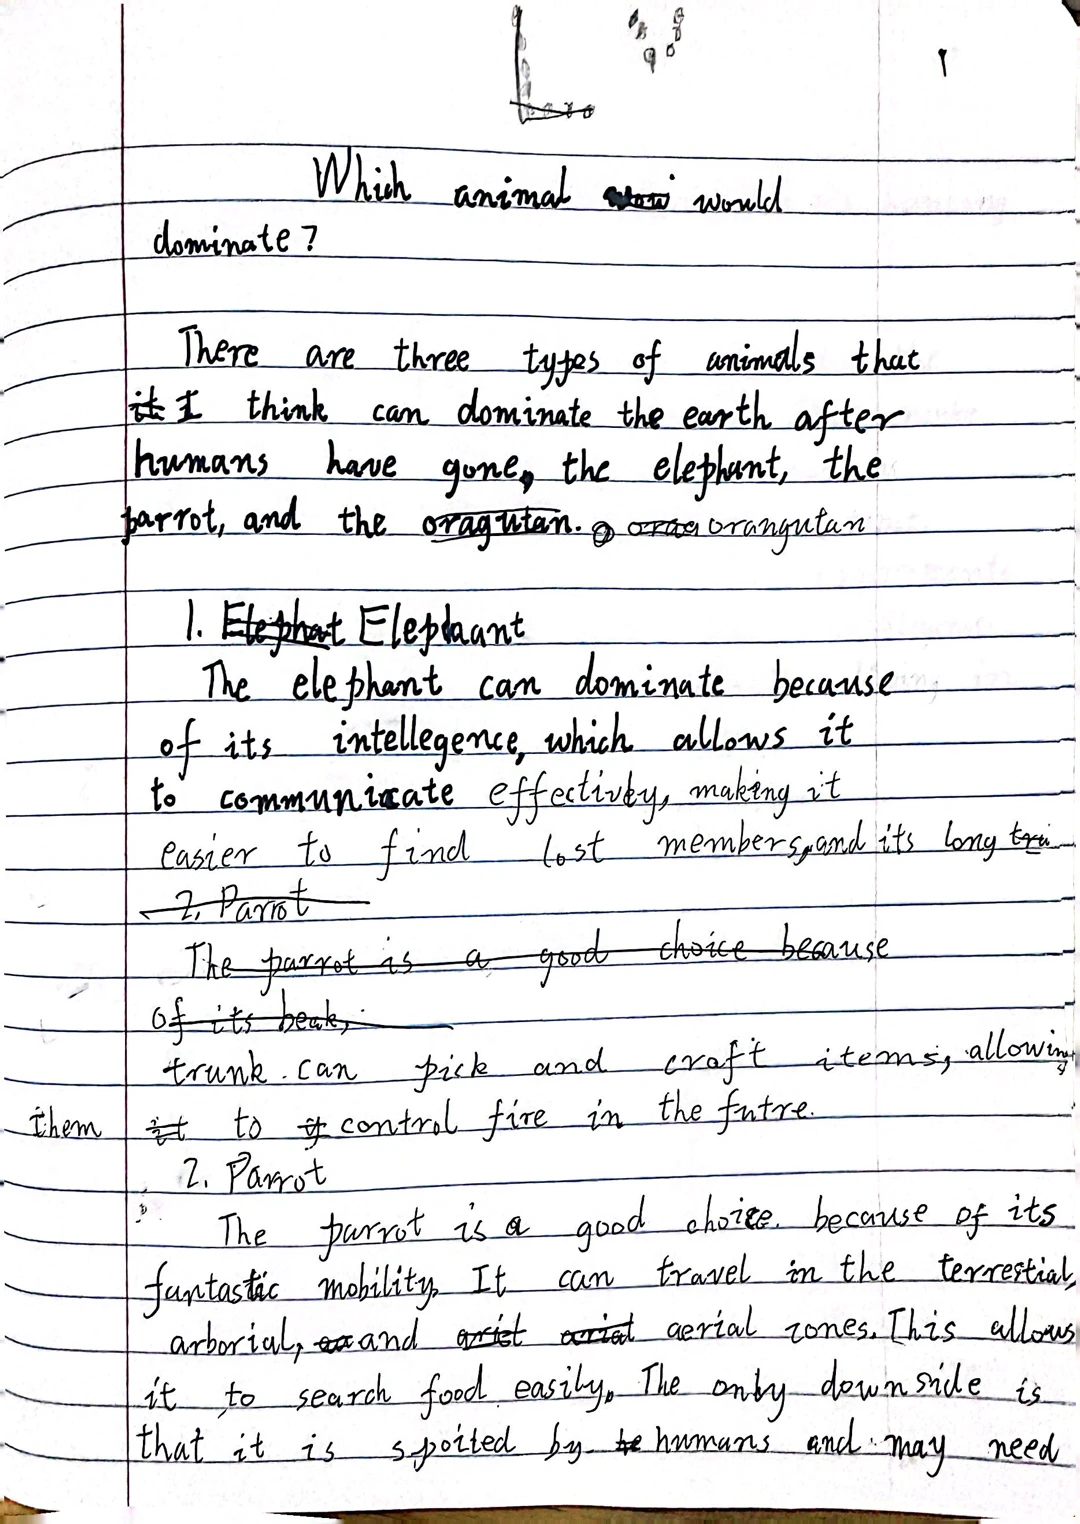 Which animal would
dominate?
There are three types of animals that
it I think can dominate the earth after
humans have gone, the elephant, the
parrot, and the oragutan. orangutan
1. Elephat Elephant
The elephant can dominate because
of its intellegence, which allows it
to communicate effectivly, making it
easier to find lost members, and its long tru
2. Parrot
The parrot is a good choice because
of its beak,
trunk can pick and craft items, allowing
them it to control fire in the futre.
2. Parrot
The parrot is a good choice because of its
fantastic mobility. It can travel in the terrestial,
arborial, and aerial zones. This allows
it to search food easily. The only downside is
that it is spoited by humans and may need